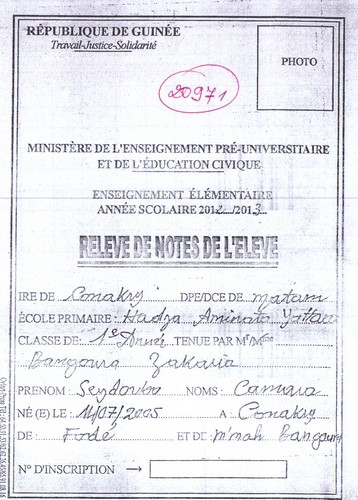 RÉPUBLIQUE DE GUINÉE
Travail-Justice-Solidarité
PHOTO
20971
MINISTÈRE DE L'ENSEIGNEMENT PRÉ-UNIVERSITAIRE
ET DE L'ÉDUCATION CIVIQUE
ENSEIGNEMENT ÉLÉMENTAIRE
ANNÉE SCOLAIRE 2012/2013
RELEVE DE NOTES DE L'ELEVE
IRE DE Conakry DPE/DCE DE matam
ÉCOLE PRIMAIRE : Hadja Aminata
CLASSE DE : 1e Année TENUE PAR Mr/Mme
Bangoura Zakaria
PRENOM : Seydouba NOMS : Camara
NÉ (E) LE : 14/07/2005 A Conakry
DE : Fodé ET DE m'mah Bangoura
N° D'INSCRIPTION →